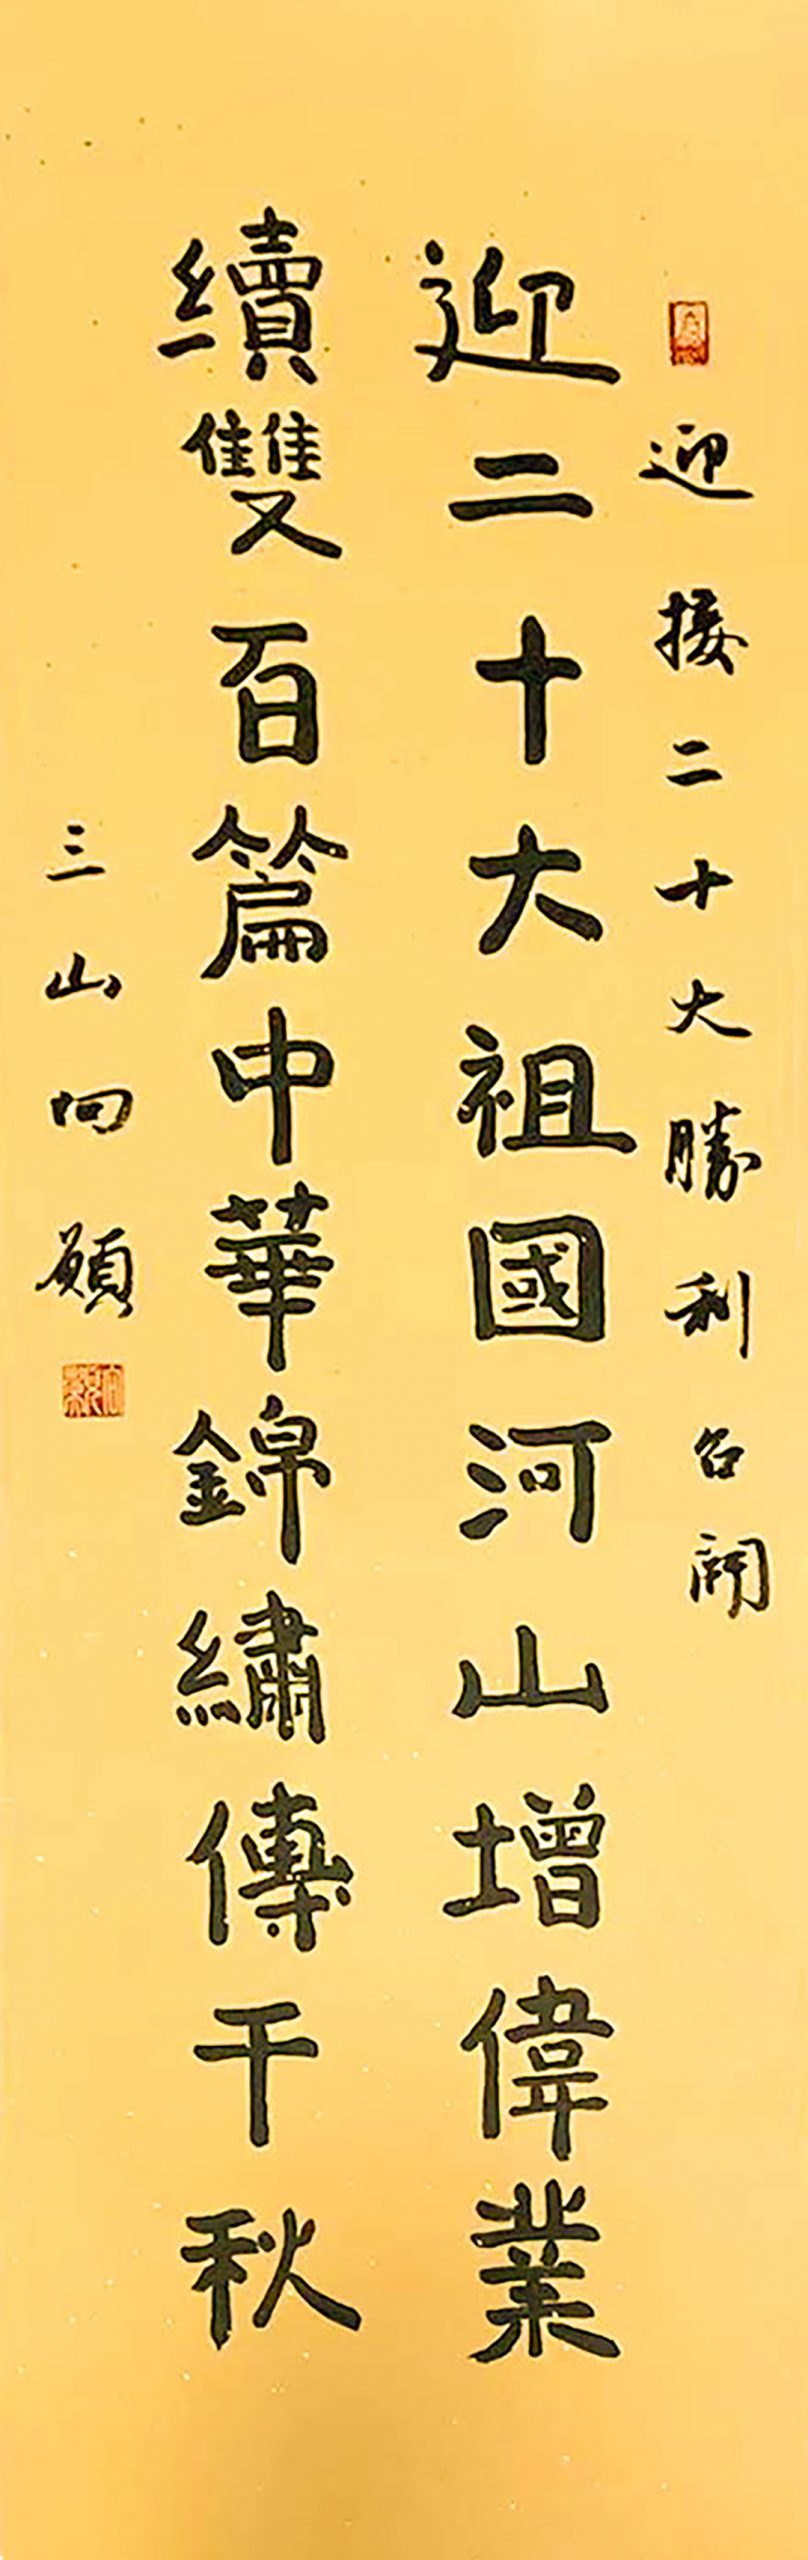 迎接二十大勝利召開
迎二十大祖國河山增偉業
續雙百篇中華錦繡傳千秋
三山向願